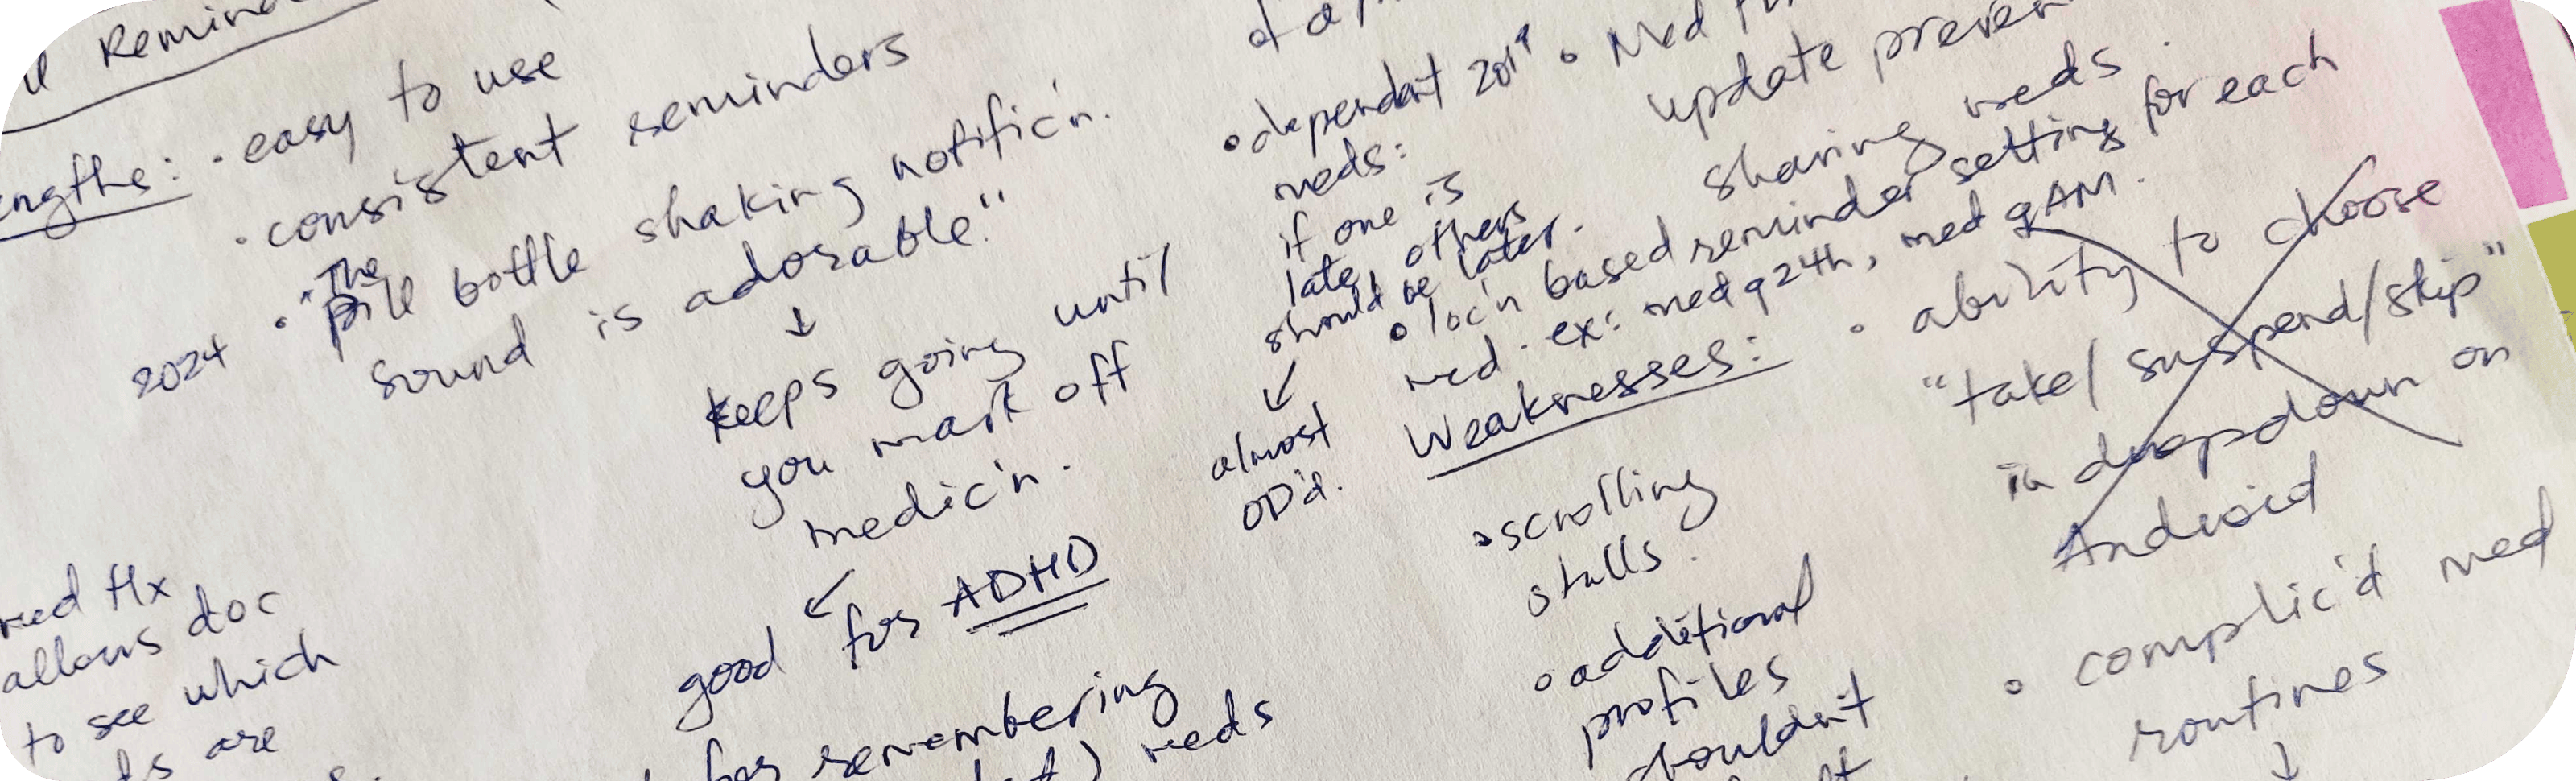 easy to use
engths:
• consistent reminders
2024 • "The pill bottle shaking notific'n.
sound is adorable."
↓
keeps going until
you mark off
medic'n.
↙
good for ADHD
remembering
meds
med Hx
allows doc
to see which
are
• dependent 2019
meds:
if one is
late, others
should be later.
↙
almost
OD'd.
• Med
update
sharing meds
• loc'n based reminder setting for each
med. ex: med q24h, med qAM.
Weaknesses:
• scrolling
stalls.
• additional
profiles
shouldn't
• ability to choose
"take/suspend/skip"
in dropdown on
Android
• complic'd med
routines
↓